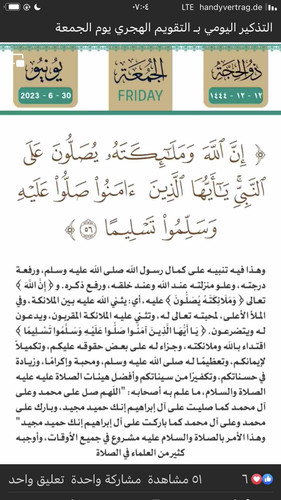 ٠٧:٠٤ LTE handyvertrag.de
التذكير اليومي بـ التقويم الهجري يوم الجمعة
ذو الحجة الجمعة يونيو
١٤٤٤ - ١٢ - ١٢ FRIDAY 2023 - 6 - 30
﴿ إِنَّ ٱللَّهَ وَمَلَـٰٓئِكَتَهُۥ يُصَلُّونَ عَلَى
ٱلنَّبِىِّ يَـٰٓأَيُّهَا ٱلَّذِينَ ءَامَنُوا۟ صَلُّوا۟ عَلَيْهِ
وَسَلِّمُوا۟ تَسْلِيمًا ۝٥٦ ﴾
وهذا فيه تنبيه على كمال رسول الله صلى الله عليه وسلم، ورفعة
درجته، وعلو منزلته عند الله وعند خلقه، ورفع ذكره. و ﴿ إِنَّ اللَّهَ ﴾
تعالى ﴿ وَمَلَائِكَتَهُ يُصَلُّونَ ﴾ عليه، أي: يثني الله عليه بين الملائكة، وفي
الملأ الأعلى، لمحبته تعالى له، وتثني عليه الملائكة المقربون، ويدعون
له ويتضرعون. ﴿ يَا أَيُّهَا الَّذِينَ آمَنُوا صَلُّوا عَلَيْهِ وَسَلِّمُوا تَسْلِيمًا ﴾
اقتداء بالله وملائكته، وجزاء له على بعض حقوقه عليكم، وتكميلاً
لإيمانكم، وتعظيمًا له صلى الله عليه وسلم، ومحبة وإكرامًا، وزيادة
في حسناتكم، وتكفيرًا من سيئاتكم وأفضل هيئات الصلاة عليه عليه
الصلاة والسلام، ما علم به أصحابه: "اللهم صل على محمد وعلى
آل محمد كما صليت على آل إبراهيم إنك حميد مجيد، وبارك على
محمد وعلى آل محمد كما باركت على آل إبراهيم إنك حميد مجيد"
وهذا الأمر بالصلاة والسلام عليه مشروع في جميع الأوقات، وأوجبه
كثير من العلماء في الصلاة
٦
٥١ مشاهدة مشاركة واحدة تعليق واحد